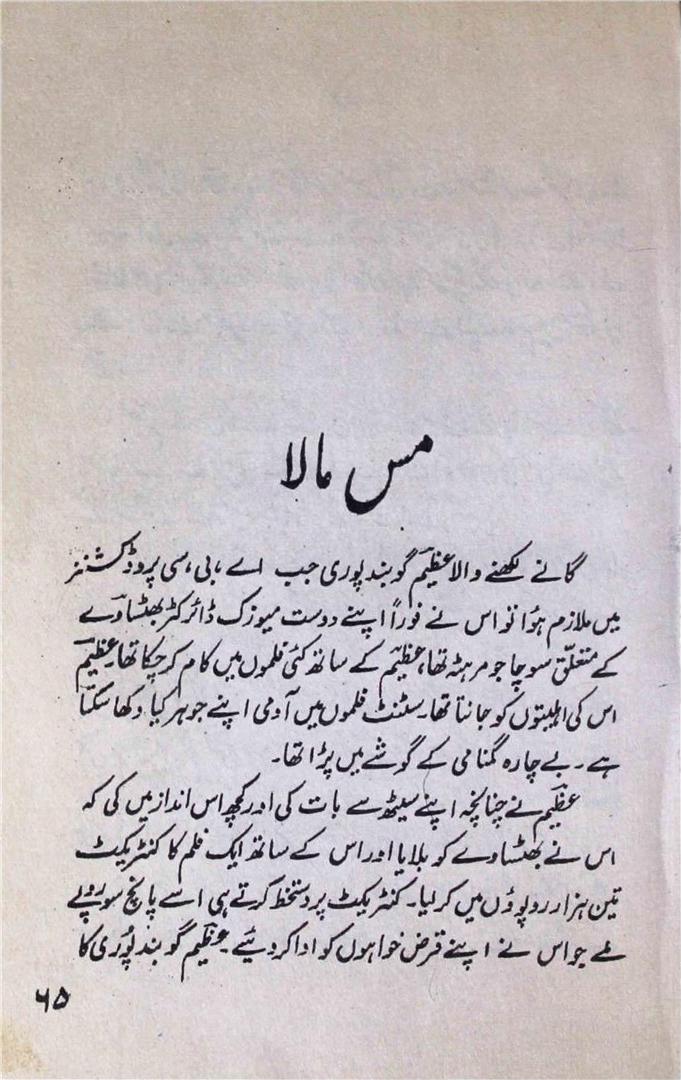 مس مالا
گانے لکھنے والا عظیم گوبند پوری جب اے، بی، سی پروڈکشنز
میں ملازم ہؤا تو اس نے فوراً اپنے دوست میوزک ڈائرکٹر بھٹساوے
کے متعلّق سوچا جو مرہٹہ تھا، عظیم کے ساتھ کئی فلموں میں کام کر چکا تھا۔ عظیم
اس کی اہلیتوں کو جانتا تھا۔ سٹنٹ فلموں میں آدمی اپنے جوہر کیا دکھا سکتا
ہے۔ بے چارہ گمنامی کے گوشے میں پڑا تھا۔
عظیم نے چنانچہ اپنے سیٹھ سے بات کی اور کچھ اس انداز میں کی کہ
اس نے بھٹساوے کو بلایا اور اس کے ساتھ ایک فلم کا کنٹریکٹ
تین ہزار روپوؤں میں کر لیا۔ کنٹریکٹ پر دستخط کرتے ہی اسے پانچ سو روپے
ملے جو اس نے اپنے قرض خواہوں کو ادا کر دیئے۔ عظیم گوبند پوری کا
۶۵